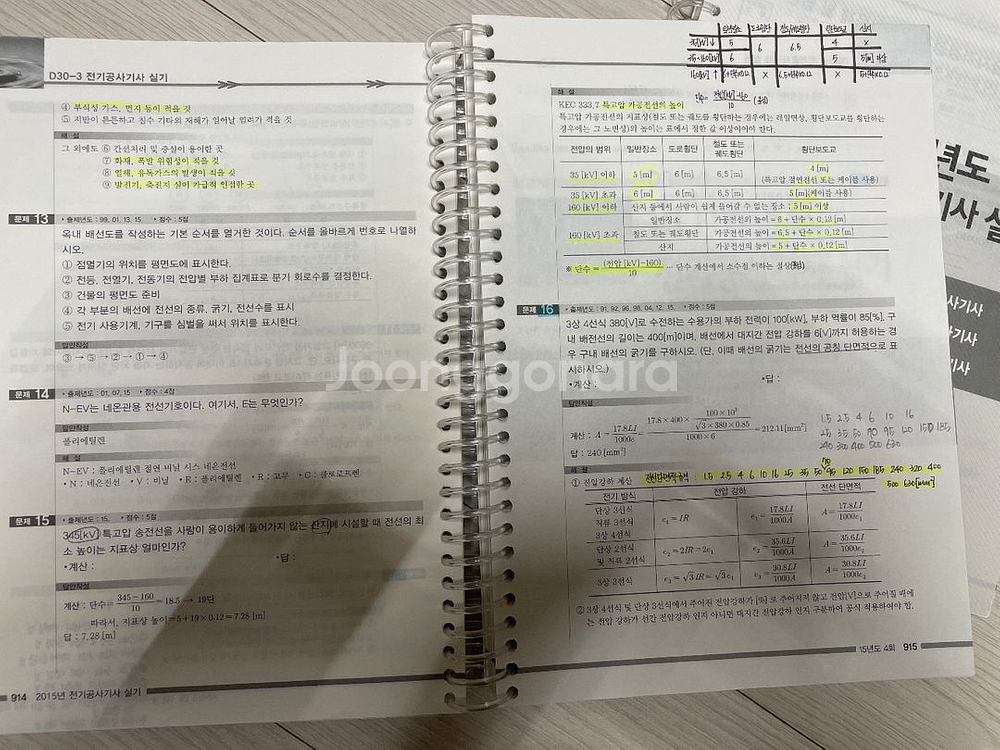 D30-3 전기공사기사 실기
④ 부식성 가스, 먼지 등이 적을 것
⑤ 지반이 튼튼하고 침수 기타의 재해가 일어날 염려가 적을 것
해 설
그 외에도 ⑥ 간선처리 및 증설이 용이한 곳
⑦ 화재, 폭발 위험성이 적을 것
⑧ 염해, 유독가스의 발생이 적을 것
⑨ 발전기, 축전지 실이 가급적 인접한 곳
문제 13 • 출제년도 : 99, 01, 13, 15. • 점수 : 5점
옥내 배선도를 작성하는 기본 순서를 열거한 것이다. 순서를 올바르게 번호로 나열하
시오.
① 점멸기의 위치를 평면도에 표시한다.
② 전등, 전열기, 전동기의 전압별 부하 집계표로 분기 회로수를 결정한다.
③ 건물의 평면도 준비
④ 각 부분의 배선에 전선의 종류, 굵기, 전선수를 표시
⑤ 전기 사용기계, 기구를 심벌을 써서 위치를 표시한다.
답안작성
③ → ⑤ → ② → ① → ④
문제 14 • 출제년도 : 01, 07, 15 • 점수 : 4점
N-EV는 네온관용 전선기호이다. 여기서, E는 무엇인가?
답안작성
폴리에틸렌
해 설
N-EV : 폴리에틸렌 절연 비닐 시스 네온전선
• N : 네온전선 • V : 비닐 • E : 폴리에틸렌 • R : 고무 • C : 클로로프렌
문제 15 • 출제년도 : 15. • 점수 : 5점
345[kV] 특고압 송전선을 사람이 용이하게 들어가지 않는 산지에 시설할 때 전선의 최
소 높이는 지표상 얼마인가?
• 계산 : • 답 :
답안작성
계산 : 단수 = (345-160)/10 = 18.5 → 19단
따라서, 지표상 높이 = 5+19×0.12 = 7.28 [m]
답 : 7.28 [m]
914 2015년 전기공사기사 실기
해 설
KEC 333.7 특고압 가공전선의 높이
특고압 가공전선의 지표상(철도 또는 궤도를 횡단하는 경우에는 레일면상, 횡단보도교를 횡단하는
경우에는 그 노면상)의 높이는 표에서 정한 값 이상이어야 한다.
전압의 범위 일반장소 도로횡단 철도 또는 궤도횡단 횡단보도교
35 [kV] 이하 5 [m] 6 [m] 6.5 [m] 4 [m] (특고압 절연전선 또는 케이블 사용)
35 [kV] 초과 160 [kV] 이하 6 [m] 6 [m] 6.5 [m] 5 [m] (케이블 사용)
산지 등에서 사람이 쉽게 들어갈 수 없는 장소 : 5 [m] 이상
160 [kV] 초과 일반장소 가공전선의 높이 = 6 + 단수 × 0.12 [m]
철도 또는 궤도횡단 가공전선의 높이 = 6.5 + 단수 × 0.12 [m]
산지 가공전선의 높이 = 5 + 단수 × 0.12 [m]
※ 단수 = (전압 [kV]-160)/10 … 단수 계산에서 소수점 이하는 절상
문제 16 • 출제년도 : 91, 92, 96, 98, 04, 12, 15. • 점수 : 5점
3상 4선식 380[V]로 수전하는 수용가의 부하 전력이 100[kW], 부하 역률이 85[%], 구
내 배전선의 길이는 400[m]이며, 배선에서 대지간 전압 강하를 6[V]까지 허용하는 경
우 구내 배선의 굵기를 구하시오. (단, 이때 배선의 굵기는 전선의 공칭 단면적으로 표
시하시오.)
• 계산 : • 답 :
답안작성
계산 : A = 17.8LI/1000e = (17.8×400×(100×10³)/(√3×380×0.85))/(1000×6) = 212.11[mm²]
답 : 240 [mm²]
1.5 2.5 4 6 10 16
25 35 50 70 95 120 150 185
240 300 400 500 630
해 설
① 전압강하 계산
전기 방식 전압 강하 전선 단면적
단상 3선식 직류 3선식 3상 4선식 e₁ = IR e₁ = 17.8LI/1000A A = 17.8LI/1000e₁
단상 2선식 및 직류 2선식 e₂ = 2IR = 2e₁ e₂ = 35.6LI/1000A A = 35.6LI/1000e₂
3상 3선식 e₃ = √3 IR = √3 e₁ e₃ = 30.8LI/1000A A = 30.8LI/1000e₃
② 3상 4선식 및 단상 3선식에서 주어진 전압강하가 [%] 로 주어지지 않고 전압[V]으로 주어질 때에
는 전압 강하가 선간 전압강하 인지 아니면 대지간 전압강하 인지 구분하여 공식 적용하여야 함.
15년도 4회 915
Joonggonara
년도
기사 실
사기사